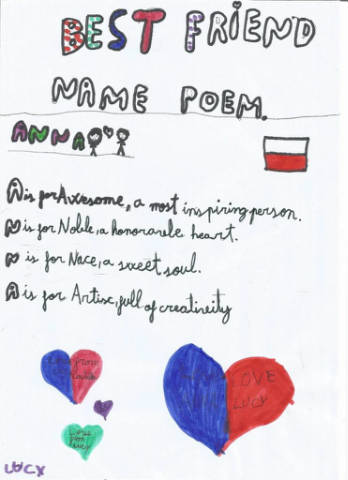 BEST FRIEND
NAME POEM.
ANNA
A is for Awesome, a most inspiring person.
N is for Noble, a honorable heart.
N is for Nece, a sweet soul.
A is for Artisc, full of creativity
from
LOVE
LUCY
Love
from
Lucy
LUCY